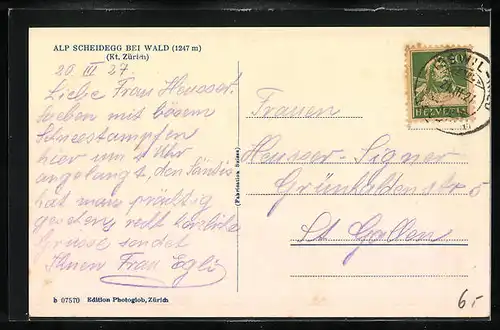 ALP SCHEIDEGG BEI WALD (1247 m)
(Kt. Zürich)
20 III 27.
Liebe Frau Heusser!
Soeben mit bösem
Schneestampfen
hier um 1 Uhr
angelangt, den Säntis
hat man prächtig
gesehen, recht herzliche
Grüsse sendet
Ihnen Frau Egli
b 07570 Edition Photoglob, Zürich
HELVETIA
Frauen
Heusser-Signer
St Gallen
6.-